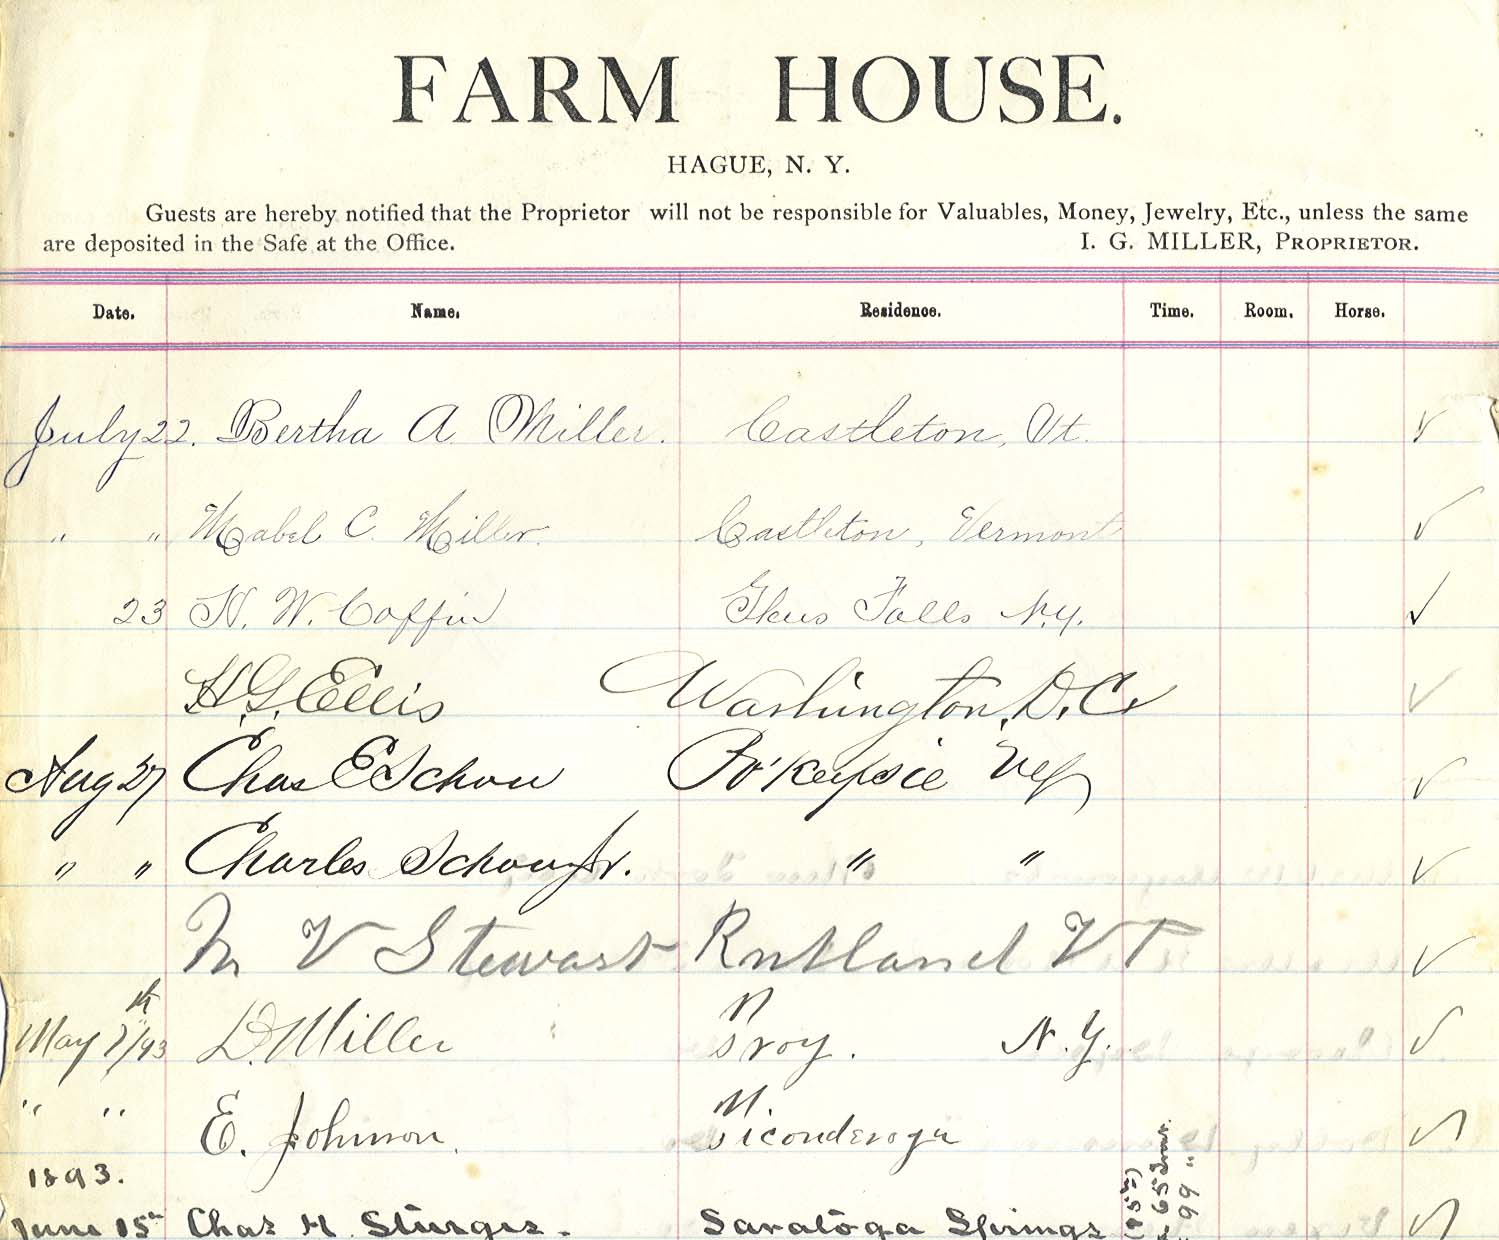 FARM HOUSE.
HAGUE, N. Y.
Guests are hereby notified that the Proprietor will not be responsible for Valuables, Money, Jewelry, Etc., unless the same
are deposited in the Safe at the Office. I. G. MILLER, PROPRIETOR.
Date. Name. Residence. Time. Room. Horse.
July 22. Bertha A. Miller. Castleton, Vt.
" " Mabel C. Miller. Castleton, Vermont
23 H. W. Coffin Glens Falls N.Y.
H. G. Ellis Washington, D.C.
Aug 27 Chas E Schou Po'Keepsie NY
" " Charles Schou Jr. " "
M V Stewart Rutland VT
May 7th/93 D. Miller Troy. N.Y.
" " E. Johnson. Ticonderoga
1893.
June 15th Chas H Sturges. Saratoga Springs